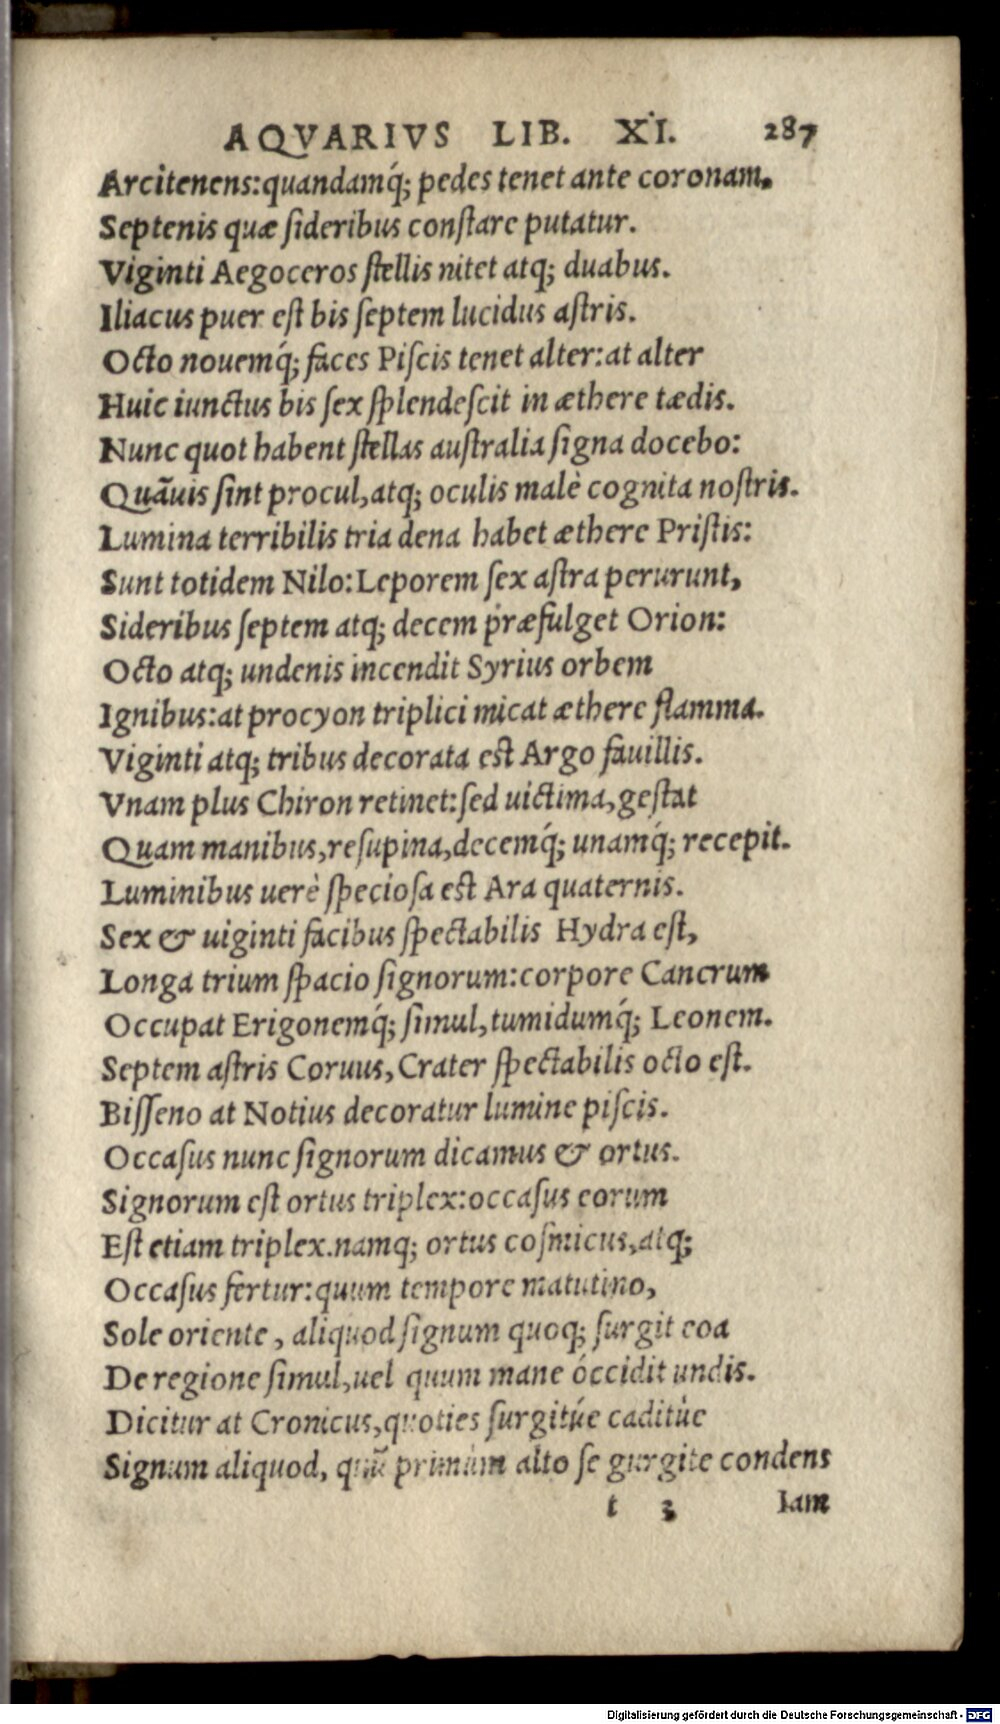 AQVARIVS LIB. XI. 287
Arcitenens:quandamq́; pedes tenet ante coronam.
Septenis quæ ſideribus conſtare putatur.
Viginti Aegoceros ſtellis nitet atq; duabus.
Iliacus puer eſt bis ſeptem lucidus aſtris.
Octo nouemq́; faces Piſcis tenet alter:at alter
Huic iunctus bis ſex ſplendeſcit in æthere tædis.
Nunc quot habent ſtellas auſtralia ſigna docebo:
Quãuis ſint procul,atq; oculis malè cognita noſtris.
Lumina terribilis tria dena habet æthere Priſtis:
Sunt totidem Nilo:Leporem ſex aſtra perurunt,
Sideribus ſeptem atq; decem præfulget Orion:
Octo atq; undenis incendit Syrius orbem
Ignibus:at procyon triplici micat æthere flamma.
Viginti atq; tribus decorata eſt Argo fauillis.
Vnam plus Chiron retinet:ſed uictima,geſtat
Quam manibus,reſupina,decemq́; unamq́; recepit.
Luminibus uerè ſpecioſa eſt Ara quaternis.
Sex & uiginti facibus ſpectabilis Hydra eſt,
Longa trium ſpacio ſignorum:corpore Cancrum
Occupat Erigonemq́; ſimul,tumidumq́; Leonem.
Septem aſtris Coruus,Crater ſpectabilis octo eſt.
Biſſeno at Notius decoratur lumine piſcis.
Occaſus nunc ſignorum dicamus & ortus.
Signorum eſt ortus triplex:occaſus eorum
Eſt etiam triplex.namq; ortus coſmicus,atq;
Occaſus fertur:quum tempore matutino,
Sole oriente, aliquod ſignum quoq; ſurgit eoa
De regione ſimul,uel quum mane óccidit undis.
Dicitur at Cronicus,quoties ſurgitúe caditúe
Signum aliquod, quũ primùm alto ſe gurgite condens
t 3 Iam
Digitalisierung gefördert durch die Deutsche Forschungsgemeinschaft - DFG